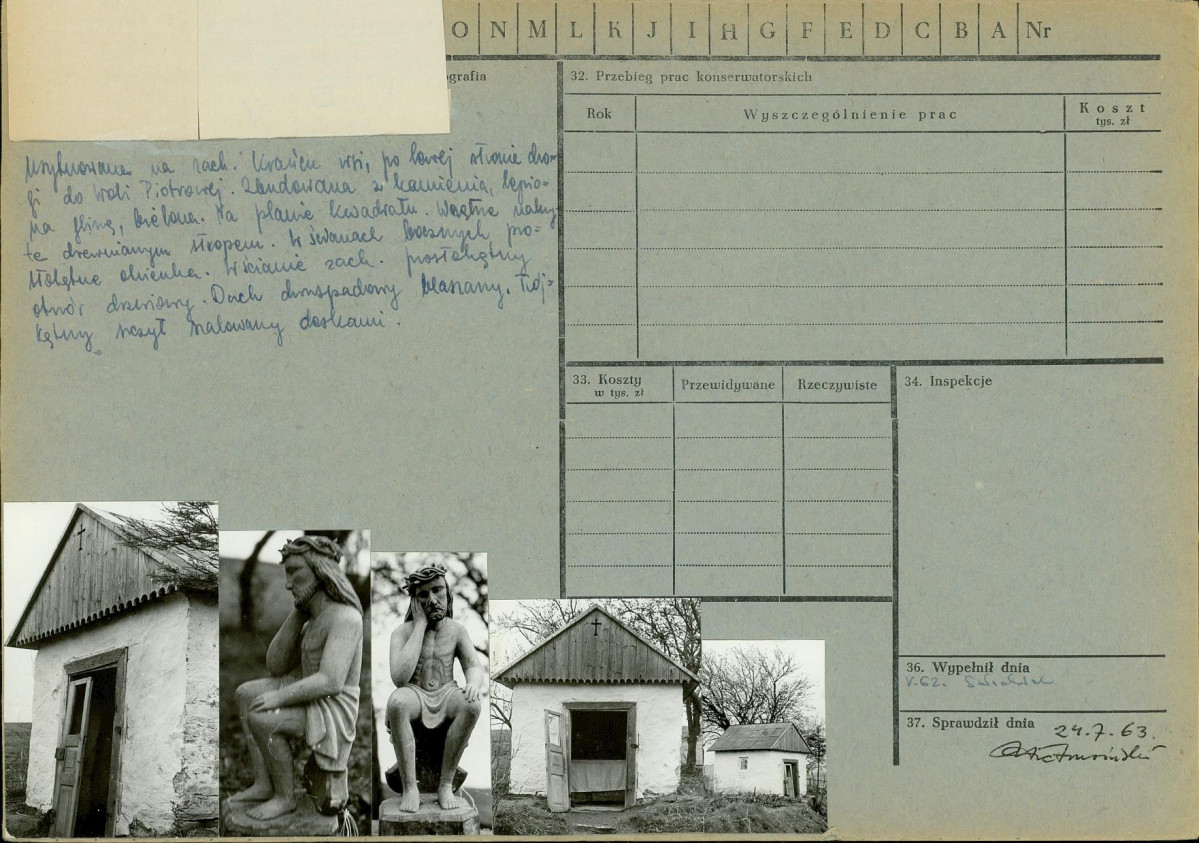 O N M L K J I H G F E D C B A Nr
ografia
Usytuowana na zach. krańcu wsi, po lewej stronie dro-
gi do Woli Piotrowej. Zbudowana z kamienia, lepio-
na gliną, bielona. Na planie kwadratu. Wnętrze nakry-
te drewnianym stropem. W ścianach bocznych pro-
stokątne okienka. W ścianie zach. prostokątny
otwór drzwiowy. Dach dwuspadowy blaszany. Trój-
kątny szczyt szalowany deskami.
32. Przebieg prac konserwatorskich
Rok Wyszczególnienie prac Koszt
tys. zł
33. Koszty Przewidywane Rzeczywiste
w tys. zł
34. Inspekcje
36. Wypełnił dnia
V.62.
37. Sprawdził dnia
24.7.63.